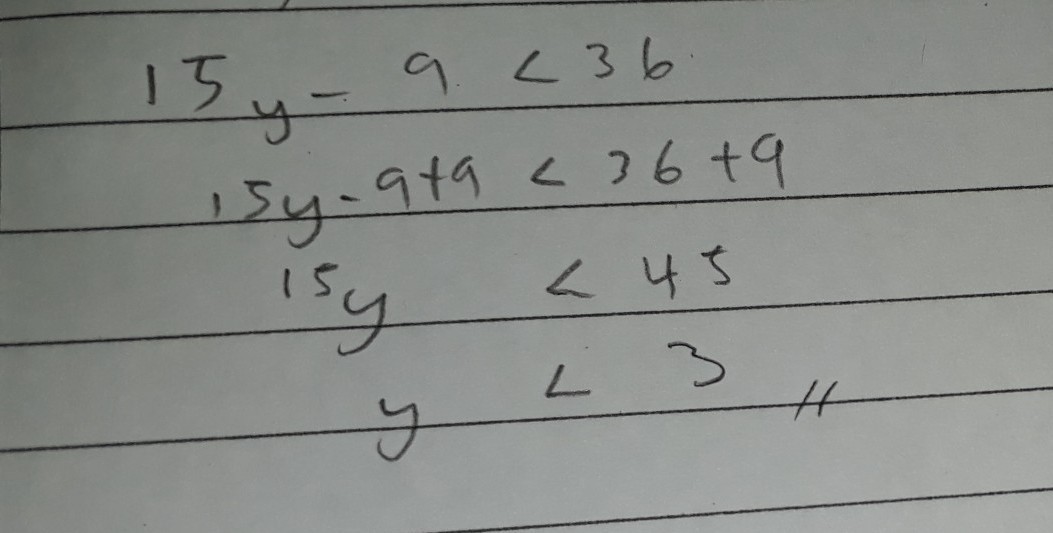 15y - 9 < 36
15y - 9 + 9 < 36 + 9
15y < 45
y < 3 //